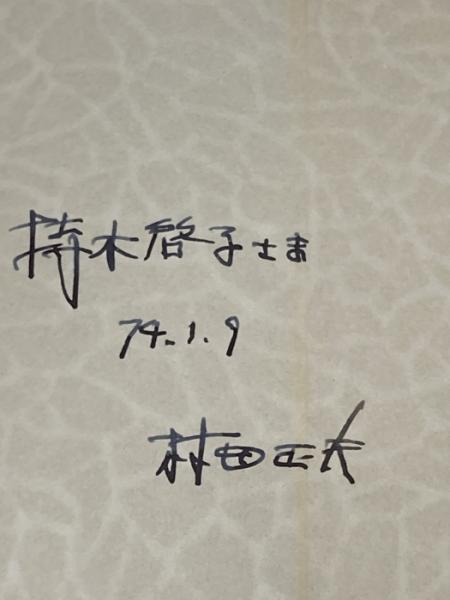 持木啓子さま
74.1.9
村田正夫